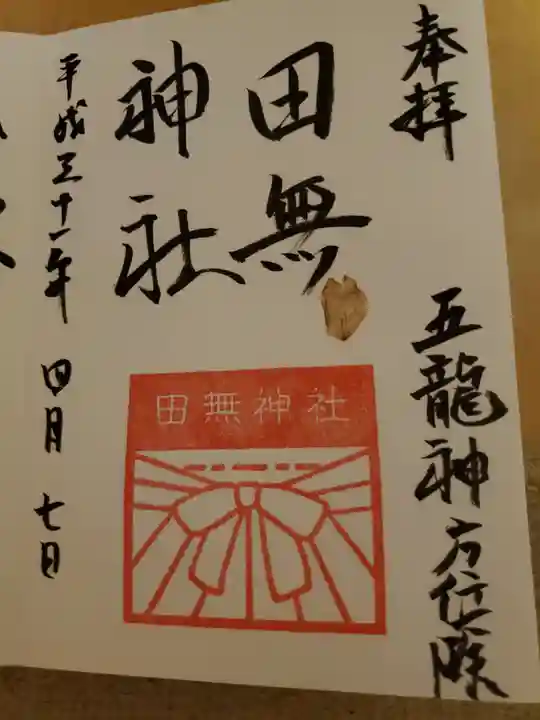 奉拝
五龍神方位除
田無
神社
田無神社
平成三十一年 四月 七日